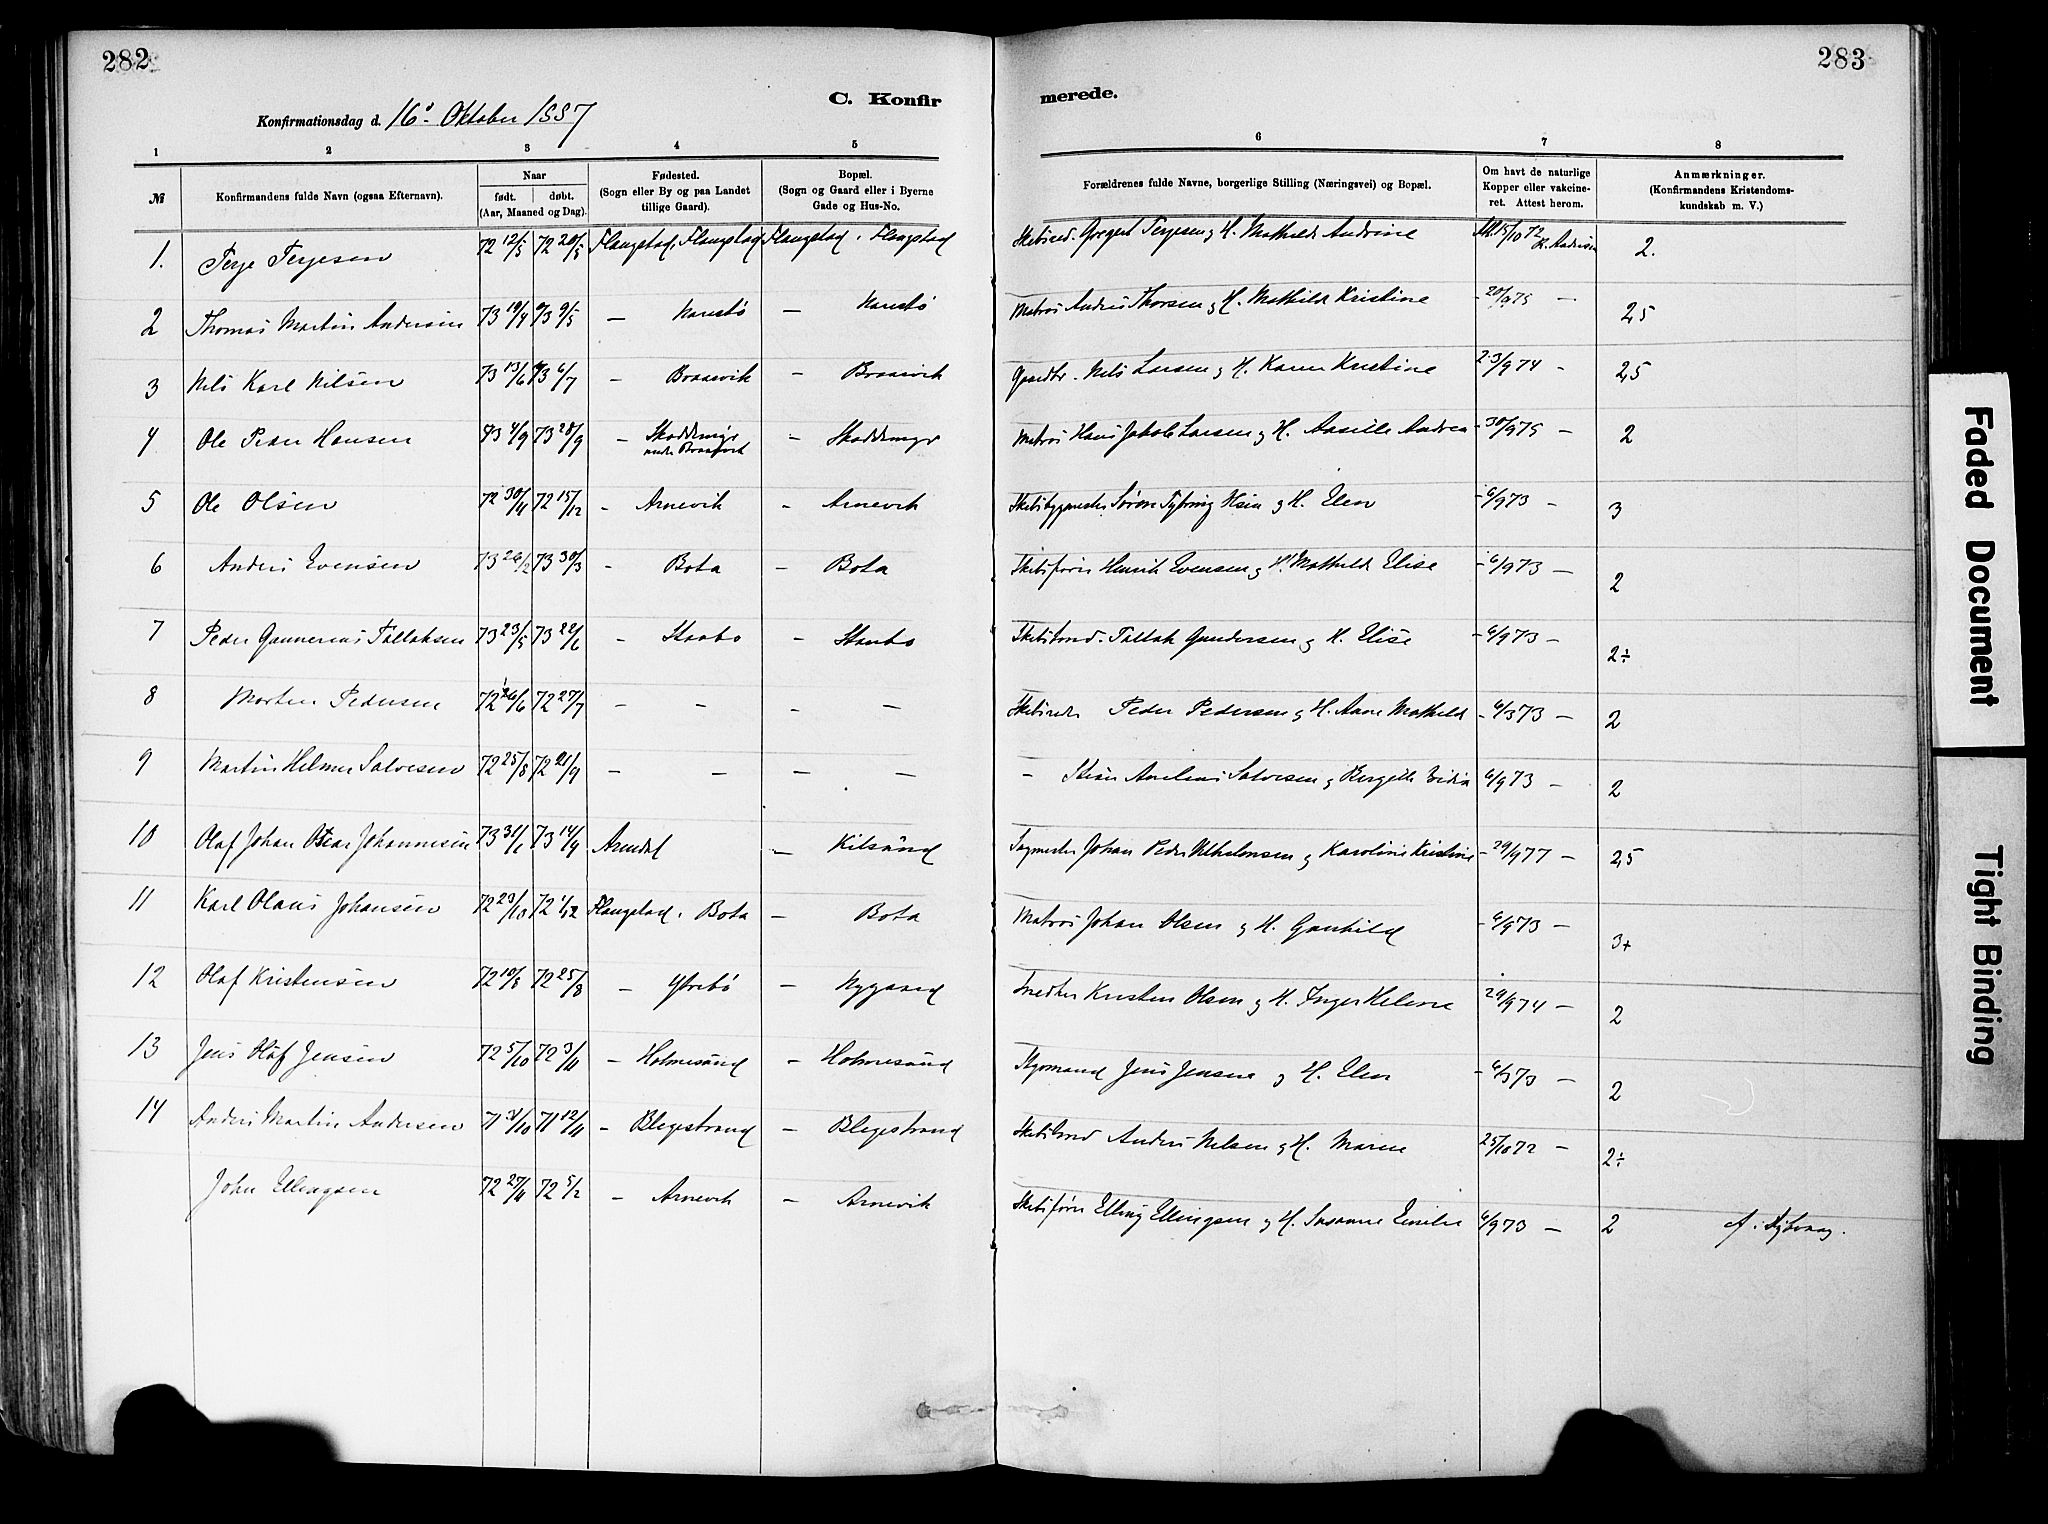 282
283
C. Konfir
merede.
Konfirmationsdag d. 16de Oktober 1887
1 2 3 4 5 6 7 8
№ Konfirmandens fulde Navn (ogsaa Efternavn). Naar født. døbt. (Aar, Maaned og Dag). Fødested. (Sogn eller By og paa Landet tillige Gaard). Bopæl. (Sogn og Gaard eller i Byerne Gade og Hus-No. Forældrenes fulde Navne, borgerlige Stilling (Næringsvei) og Bopæl. Om havt de naturlige Kopper eller vakcineret. Attest herom. Anmærkninger. (Konfirmandens Kristendomskundskab m. V.)
1. Terje Terjesen 72 12/5 72 20/5 Flangstad, Flangstad Flangstad, Flangstad Gregert Terjesen og H. Mathilde Andrine 15/10 72 2.
2 Thomas Martin Andersen 73 19/4 73 9/5 — Narestø — Narestø Matros Anders Thorsen og H. Mathilde Kristine - 20/9 75 — 2,5
3 Nils Karl Nilsen 73 13/6 73 6/7 - Braarvik - Braarvik Gaardbr. Nils Larsen og H. Karen Kristine 23/9 74 - 2,5
4 Ole Peder Hansen 73 4/9 73 28/9 - Skoddemyr under Braarvik - Skoddemyr Matros Hans Jakob Larsen og H. Aasille Andrea - 30/9 75 - 2
5 Ole Olsen 72 30/11 72 15/12 - Arnevik - Arnevik Skibsbygmester Søren Tybring Olsen og H. Elen - 6/9 73 - 3
6 Anders Evensen 73 26/2 73 30/3 - Bota - Bota Skibsfører Henrik Evensen og H. Mathilde Elise - 6/9 73 — 2
7 Peder Gunnerius Tallaksen 73 23/5 73 22/6 - Staubo - Staubo Skibstmd. Tallak Gundersen og H. Elise - 6/9 73 - 2÷
8 Morten Pedersen 72 26/6 72 27/7 - - - - Skibsreder Peder Pedersen og H. Anne Mathilde - 6/3 73 — 2
9 Martin Helmer Salvesen 72 25/8 72 21/9 - - - - - Stian Aurelius Salvesen og Bergitte 6/9 73 - 2
10 Olaf Johan Oscar Johannesen 73 31/1 73 14/9 Arendal - Kilsund Sagmester Johan Peder Vilhelmsen og Karoline Kristine - 29/9 77 - 2,5
11 Karl Olaus Johansen 72 23/10 72 1/12 Flangstad, Bota — Bota Matros Johan Olsen og H. Gunhild - 6/9 73 - 3+
12 Olaf Kristensen 72 10/8 72 25/8 - Ytrebø - Nygaard Snedker Kristen Olsen og H. Inger Helene 29/9 74 - 2
13 Jens Olaf Jensen 72 5/10 72 3/11 - Holmesund - Holmesund Styrmand Jens Jensen og H. Elen - 6/3 73 - 2
14 Anders Martin Andersen 71 3/10 71 12/11 - Blegestrand - Blegestrand Anders Nilsen og H. Maren 25/10 72 - 2÷
John Ellingsen 72 27/11 72 5/12 - Arnevik - Arnevik Skibsfører Elling Ellingsen og H. Susanne Emilie 6/9 73 — 2 f. i Dybvaag.
Faded Document
Tight Binding